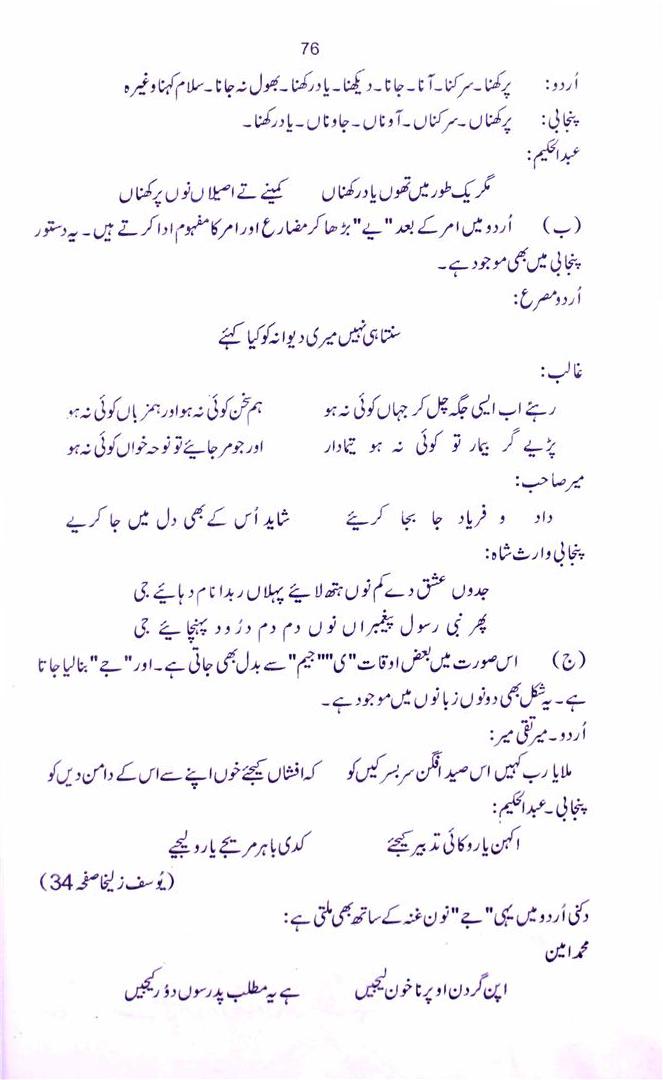 76
اُردو: پرکھنا۔سرکنا۔آنا۔جانا۔دیکھنا۔یادرکھنا۔بھول نہ جانا۔سلام کہنا وغیرہ
پنجابی: پرکھناں۔سرکناں۔آوناں۔جاوناں۔یادرکھنا۔
عبدالحکیم:
مگر یک طور میں تھوں یاد رکھناں کمینے تے اصیلاں نوں پرکھناں
(ب) اُردو میں امر کے بعد "یے" بڑھا کر مضارع اور امر کا مفہوم ادا کرتے ہیں۔ یہ دستور
پنجابی میں بھی موجود ہے۔
اُردو مصرع:
سنتا ہی نہیں میری دیوانہ کو کیا کہئے
غالب:
رہئے اب ایسی جگہ چل کر جہاں کوئی نہ ہو ہم سخن کوئی نہ ہو اور ہمزباں کوئی نہ ہو
پڑیے گر بیمار تو کوئی نہ ہو تیماردار اور جو مر جائیے تو نوحہ خواں کوئی نہ ہو
میر صاحب:
داد و فریاد جا بجا کرئیے شاید اُس کے بھی دل میں جا کریے
پنجابی وارث شاہ:
جدوں عشق دے کم نوں ہتھ لائیے پہلاں ربدا نام دہائیے جی
پھر نبی رسول پیغمبراں نوں دم دم درُود پہنچائیے جی
(ج) اس صورت میں بعض اوقات "ی" "جیم" سے بدل بھی جاتی ہے۔ اور "جے" بنا لیا جاتا
ہے۔ یہ شکل بھی دونوں زبانوں میں موجود ہے۔
اُردو۔ میر تقی میر:
ملا یا رب کہیں اس صید افگن سربسر کیں کو کہ افشاں کیجئے خوں اپنے سے اس کے دامن دیں کو
پنجابی۔ عبدالحکیم:
اکہن یارو کائی تدبیر کیجئے کدی باہر مریجے یا رولیجیے
(یُوسف زلیخا صفحہ 34)
دکنی اُردو میں یہی "جے" نون غنہ کے ساتھ بھی ملتی ہے:
محمد امین
اپن گردن اوپر نا خون لیجیں ہے یہ مطلب پدر سوں دؤر کیجیں